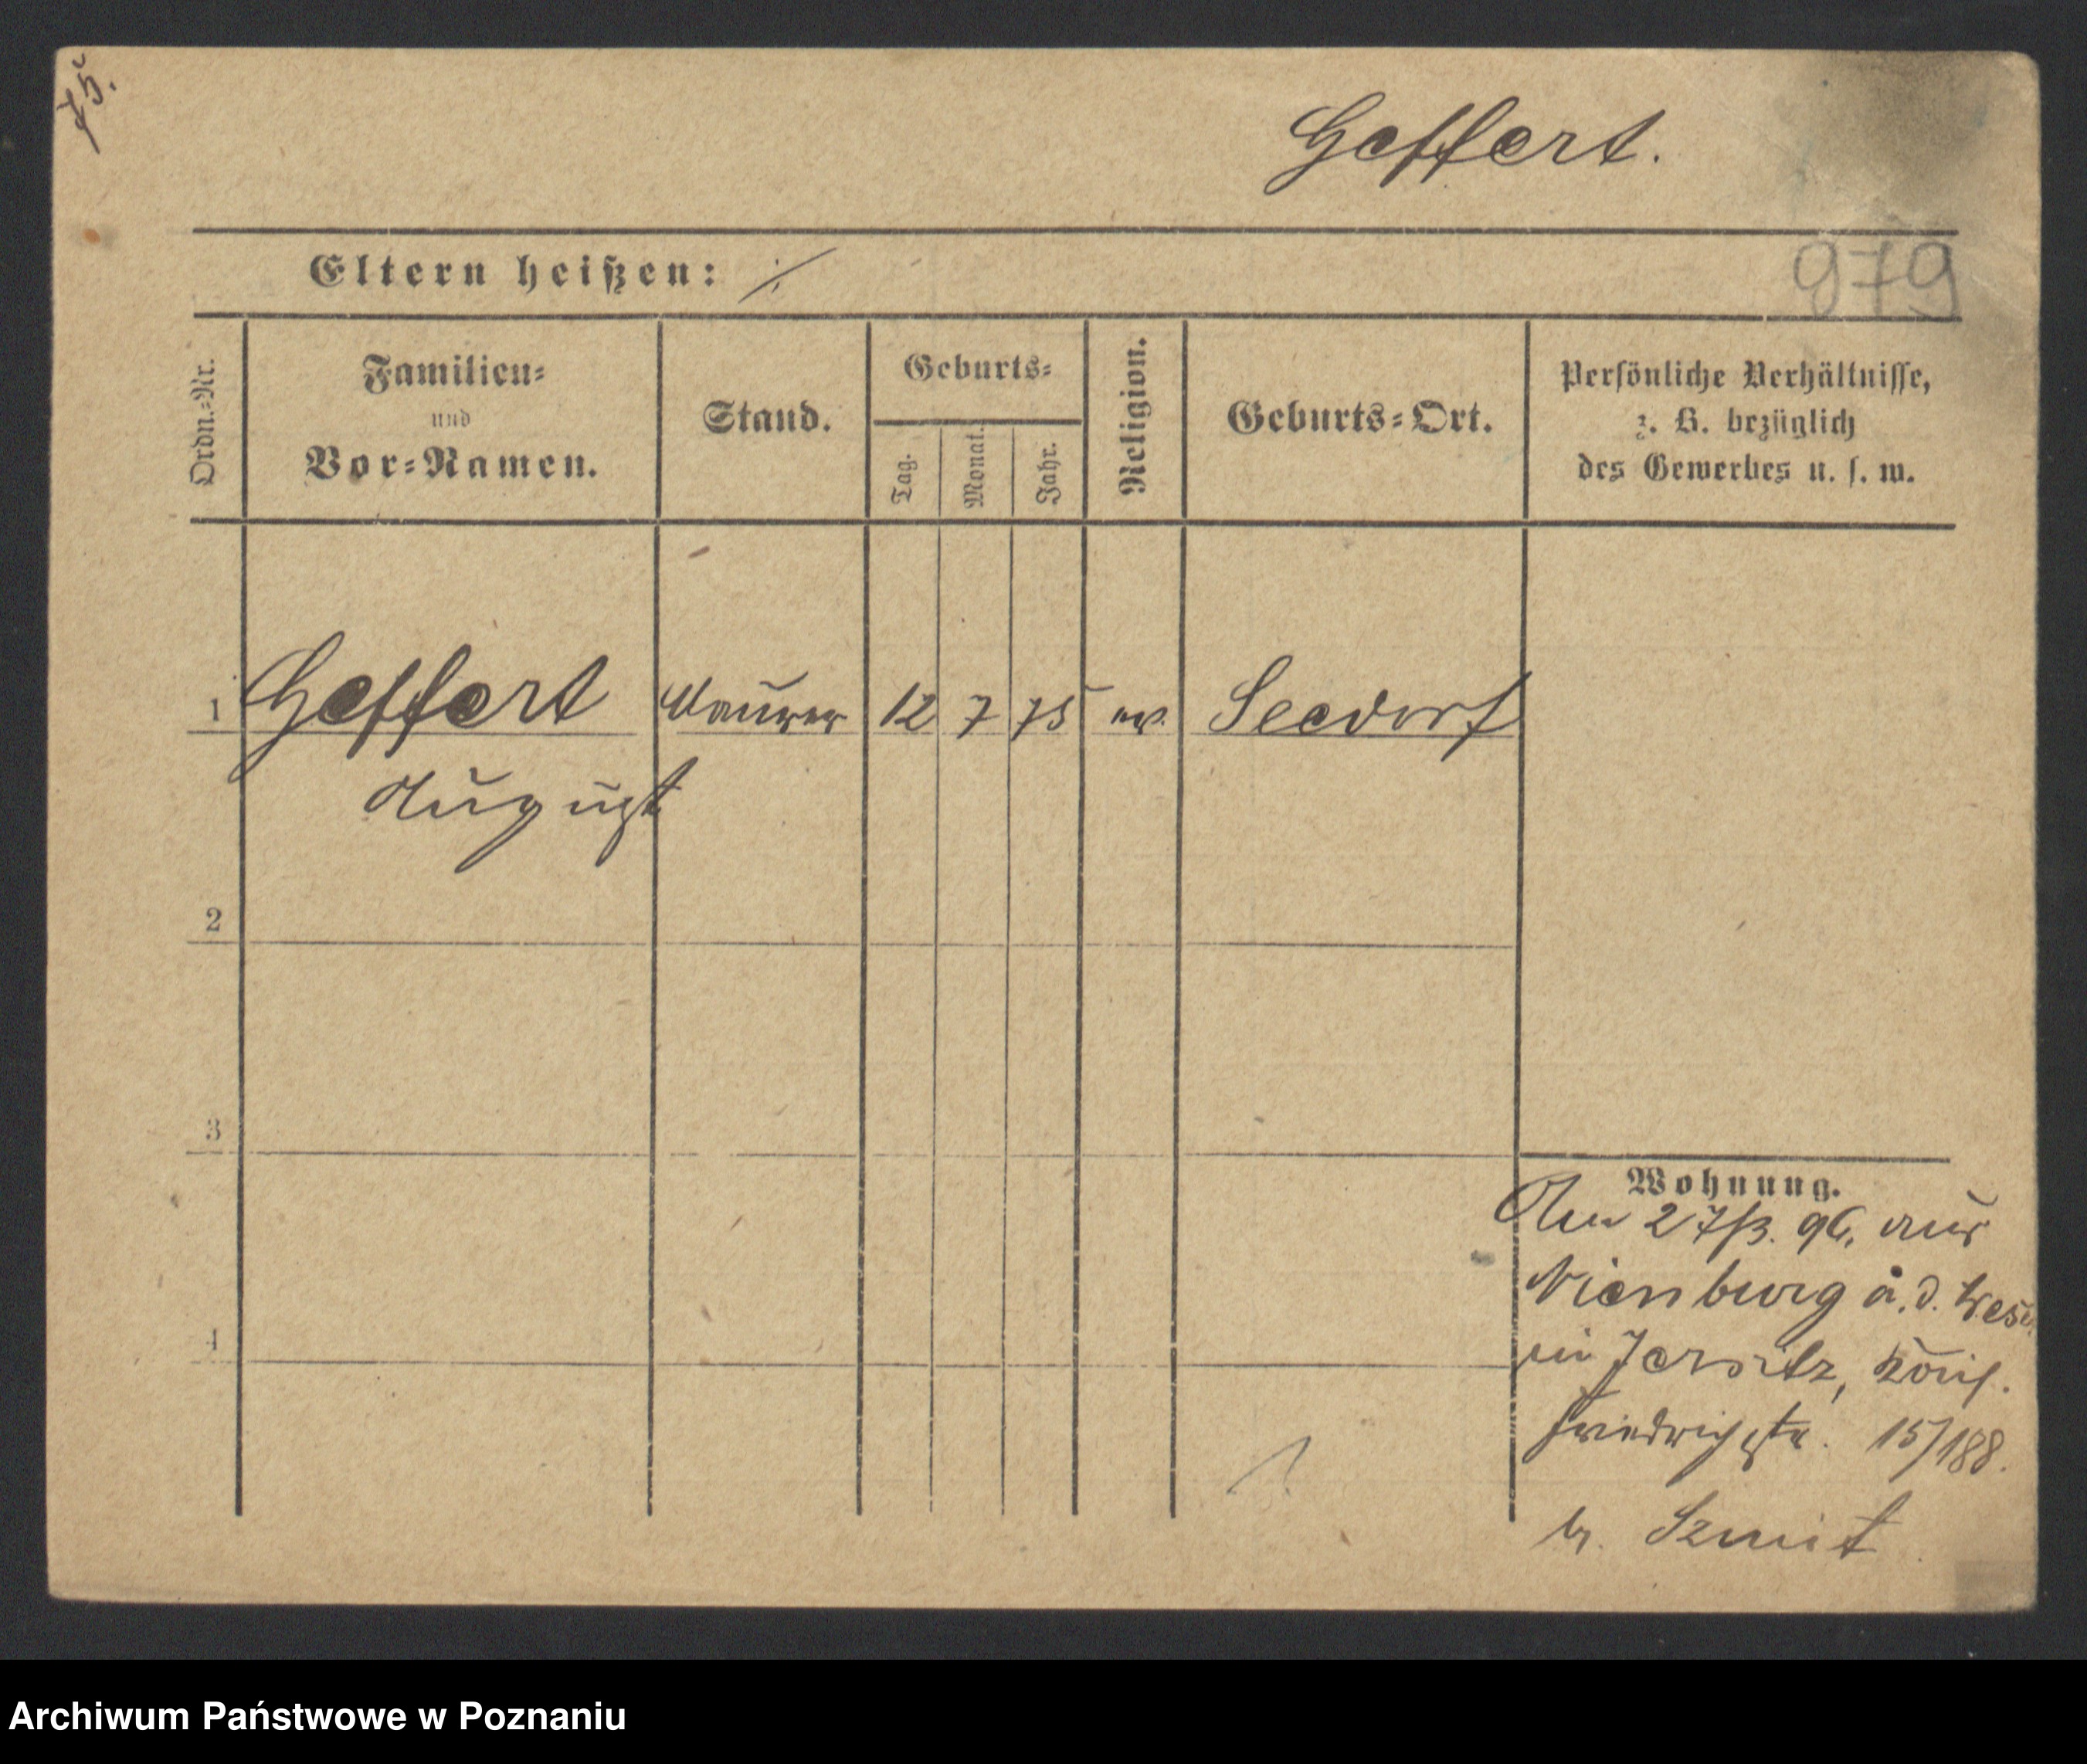 75.
Geffert.
Eltern heißen: ·/·
979
Ordn.-Nr.
Familien-
und
Vor-Namen.
Stand.
Geburts-
Tag.
Monat.
Jahr.
Religion.
Geburts-Ort.
Persönliche Verhältnisse,
z. B. bezüglich
des Gewerbes u. s. w.
1 Geffert Maurer 12 7 75 ev. Seedorf
August
2
3
4
Wohnung.
Am 27/3. 96. aus
Nienburg a. d. Weser
in Jersitz, König.
Friedrichstr. 15/188.
b. Szmit
Archiwum Państwowe w Poznaniu